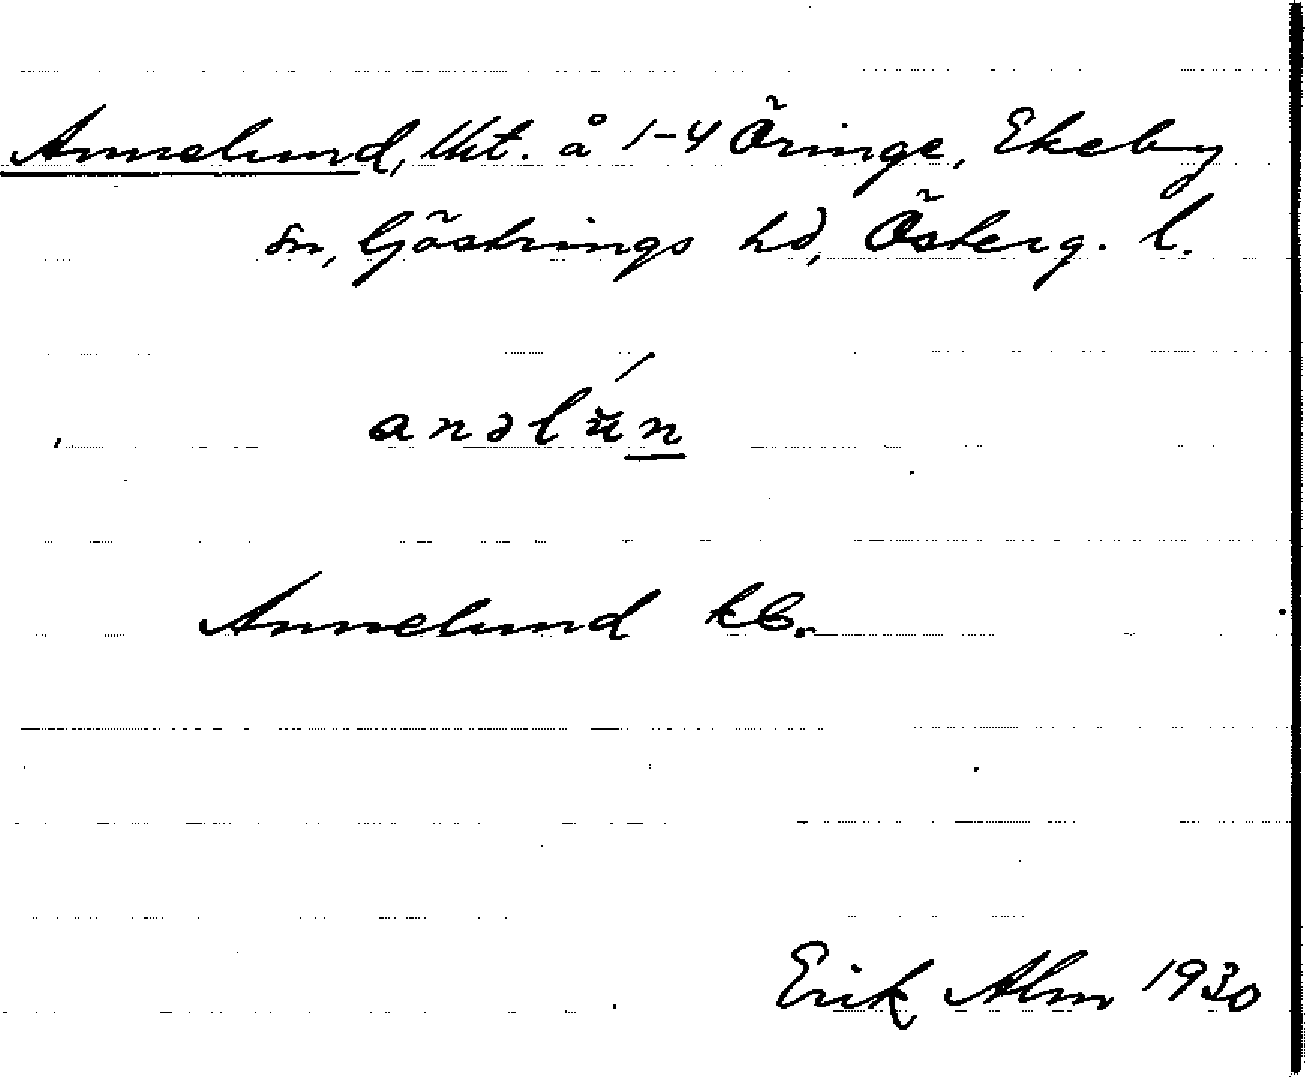 Annelund, lht. å 1-4 Öringe, Ekeby
sn, Göstrings hd, Österg. l.
anəlún
Annelund kb.
Erik Alm 1930